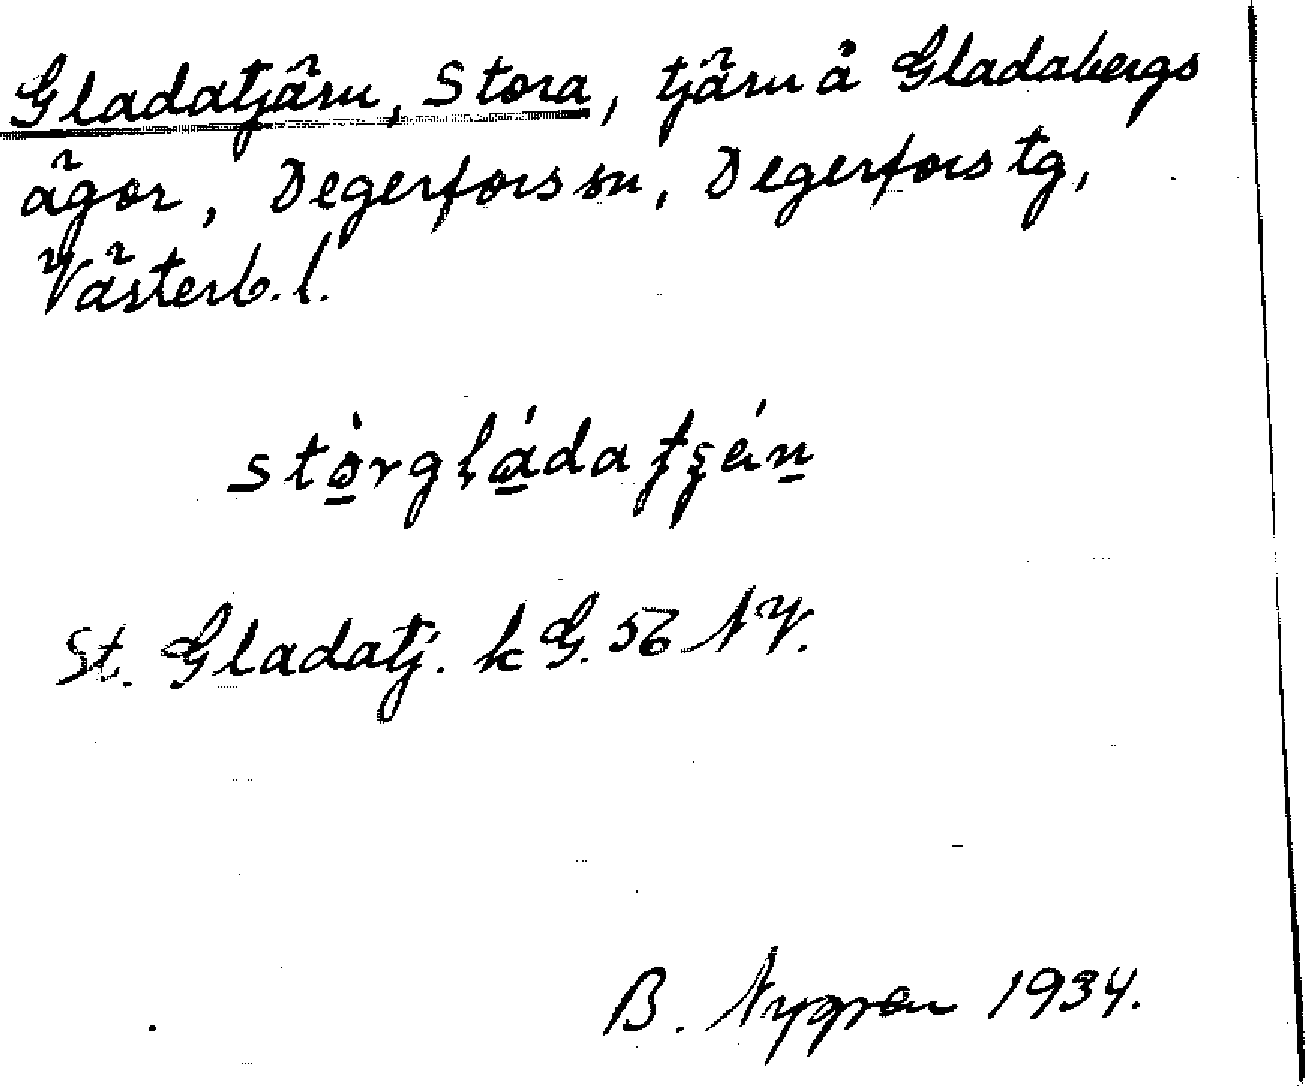 Gladatjärn, Stora, tjärn å Gladabergs
ägor, Degerfors sn, Degerfors tg,
Västerb. l.
St. Gladatj. k G. 56 NV.
B. Nygren 1934.